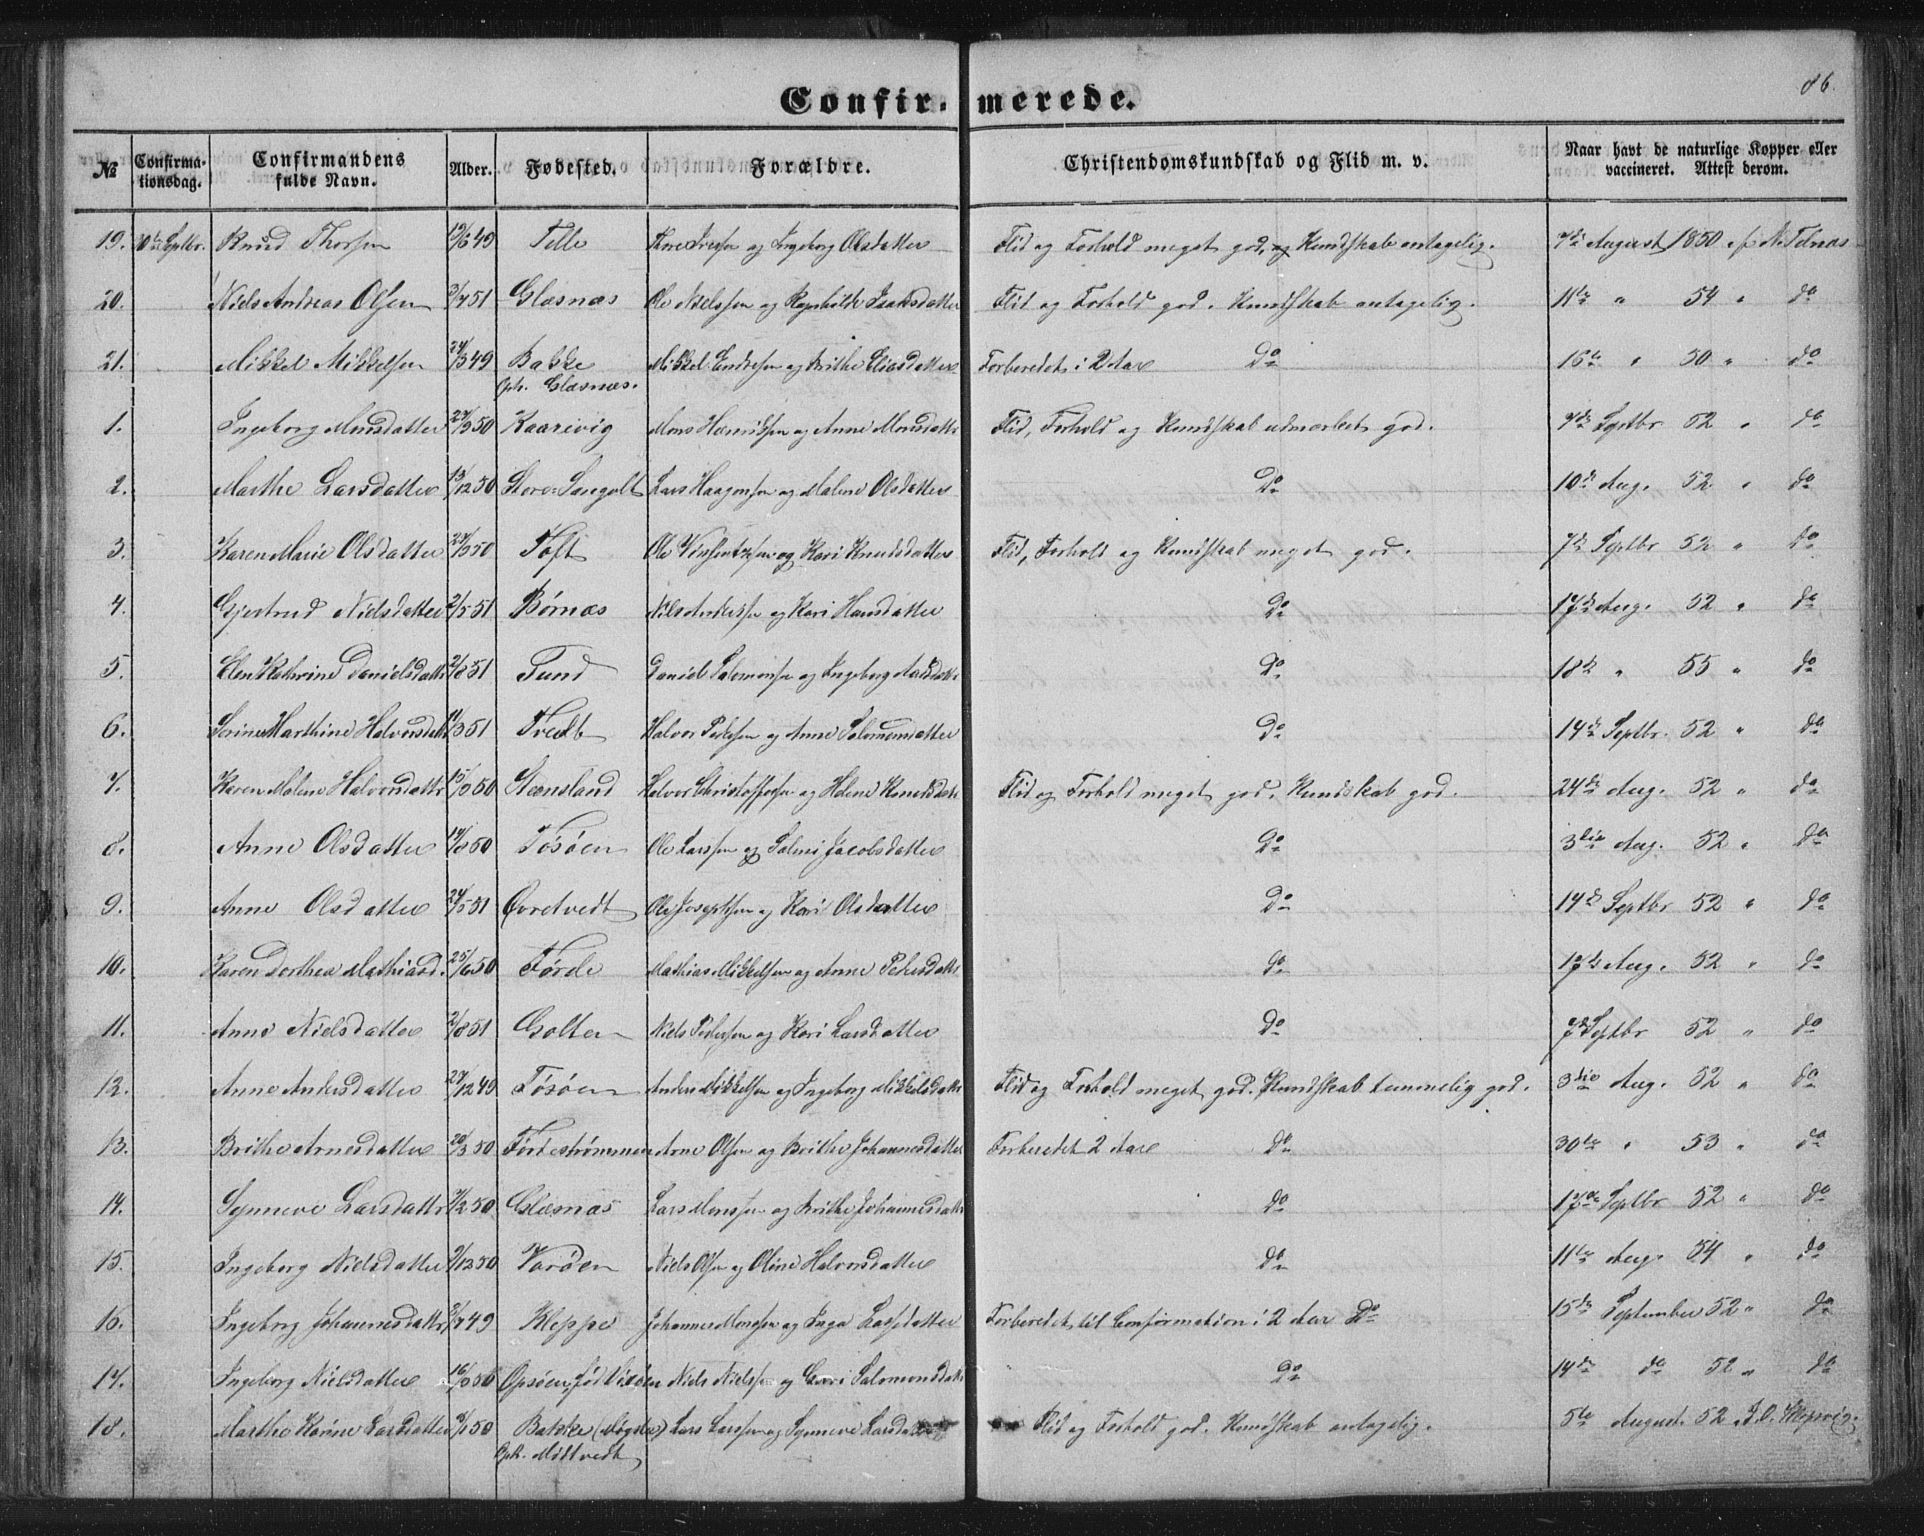 86.
Confirmerede.
№ Confirmationsdag. Confirmandens fulde Navn. Alder. Fødested. Forældre. Christendomskundskab og Flid m. v. Naar havt de naturlige Kopper eller vaccineret. Attest derom.
19. Septbr. Knud Thorsen Telle og Ingeborg Olsdatter Flid og Forhold meget god, og Kundskab antagelig. August 1850 af N. Tednæs
20. Niels Andreas Olsen 51 Glæsnæs Ole Nielssen og Isaksdatter Flid og Forhold god. Kundskab antagelig. 11te " 54 " do
21. Mikkel Mikkelsen 49 Bakke Mikkel Endresen og Brithe Eliasdatter Forberedet i 2 Aar Do 16de " 50 " do
Oph. Glæsnæs.
1. Ingeborg Monsdatter 50 Kaarevig Mons og Anne Monsdattr Flid, Forhold og Kundskab udmærket god. Septbr 52 " do
2. Marthe Larsdatter 13/12 50 Store Sangolt Lars Haagensen og Malene Olsdatter Do 10de Aug. 52 " do
3. Karen Marie Olsdatter 50 Toft Ole Vinsentzsen og Kari Knudsdatter Flid, Forhold og Kundskab meget god. 7de Septbr 52 " do
4. Gjertrud Nielsdatter 2/5 51 Børnæs Nils Anderssen og Kari Hansdatter do 17de Aug. 52 " do
5. Elen Kathrine Danielsdattr 2/8 51 Tund Daniel Salomonsen og Ingeborg do 18de " 55 " do
6. Serine Marthine Halvorsdattr 3 51 Tvedt Halvor Pedersen og Anne Salomonsdatter do 14de Septbr. 52 " do
7. Karen Malene Halvorsdattr 50 Stensland Halvor Christoffersen og Helene Flid og Forhold meget god. Kundskab god. 24de Aug. 52 " do
8. Anne Olsdatter 14/8 50 Tøsøen Ole Larssen og Salmi Jacobsdatter do 3die Aug. 52 " do
9. Anne Olsdatter 24/5 51 Qvretvedt Ole Josephsen og Kari Olsdatter do 14de Septbr 52 " do
10. Karen Dorthea Mathiasd. 25/6 50 Førde Mathias Mikkelsen og Anne Pedersdattr do 17de Aug. 52 " do
11. Anne Nielsdatter 2/8 51 Golten Niels Pedersen og Kari Larsdatter do 7de Septbr 52 " do
12. Anne Andersdatter 27/12 49 Tøsøen Anders Mikkelsen og Ingeborg Mikkelsdattr Flid og Forhold meget god. Kundskab temmelig god. 3die Aug. 52 " do
13. Brithe Arnesdatter 20/3 50 Førdestrømmen Arne Olsen og Brithe Johannesdatter Forberedet 2 Aar do 30te " 53 " do
14. Synneve Larsdattr 2 50 Glæsnæs Lars Monssen og Brithe Johannesdattr do 17de Septbr 52 " do
15. Ingeborg Nielsdatter 9/12 50 Varøen Niels Olsen og Oline Halvorsdatter do 11te Aug. 54 " do
16. Ingeborg Johannesdattr 49 Kleppe Johannes Monsen og Inga Larsdatter Forberedet til Confirmation i 2 Aar Do 15de September 52 " do
17. Ingeborg Nielsdatter 50 Opsøen, født Niels Nielssen og Guri Salomonsdattr do 14de do 52 " do
18. Marthe Karine Larsdatter 50 Bakke (Møgster) Lars Larssen og Synneve Larsdatter Flid og Forhold god. Kundskab antagelig. 5te August 52 Klepsvig.
Oph. Midtvedt